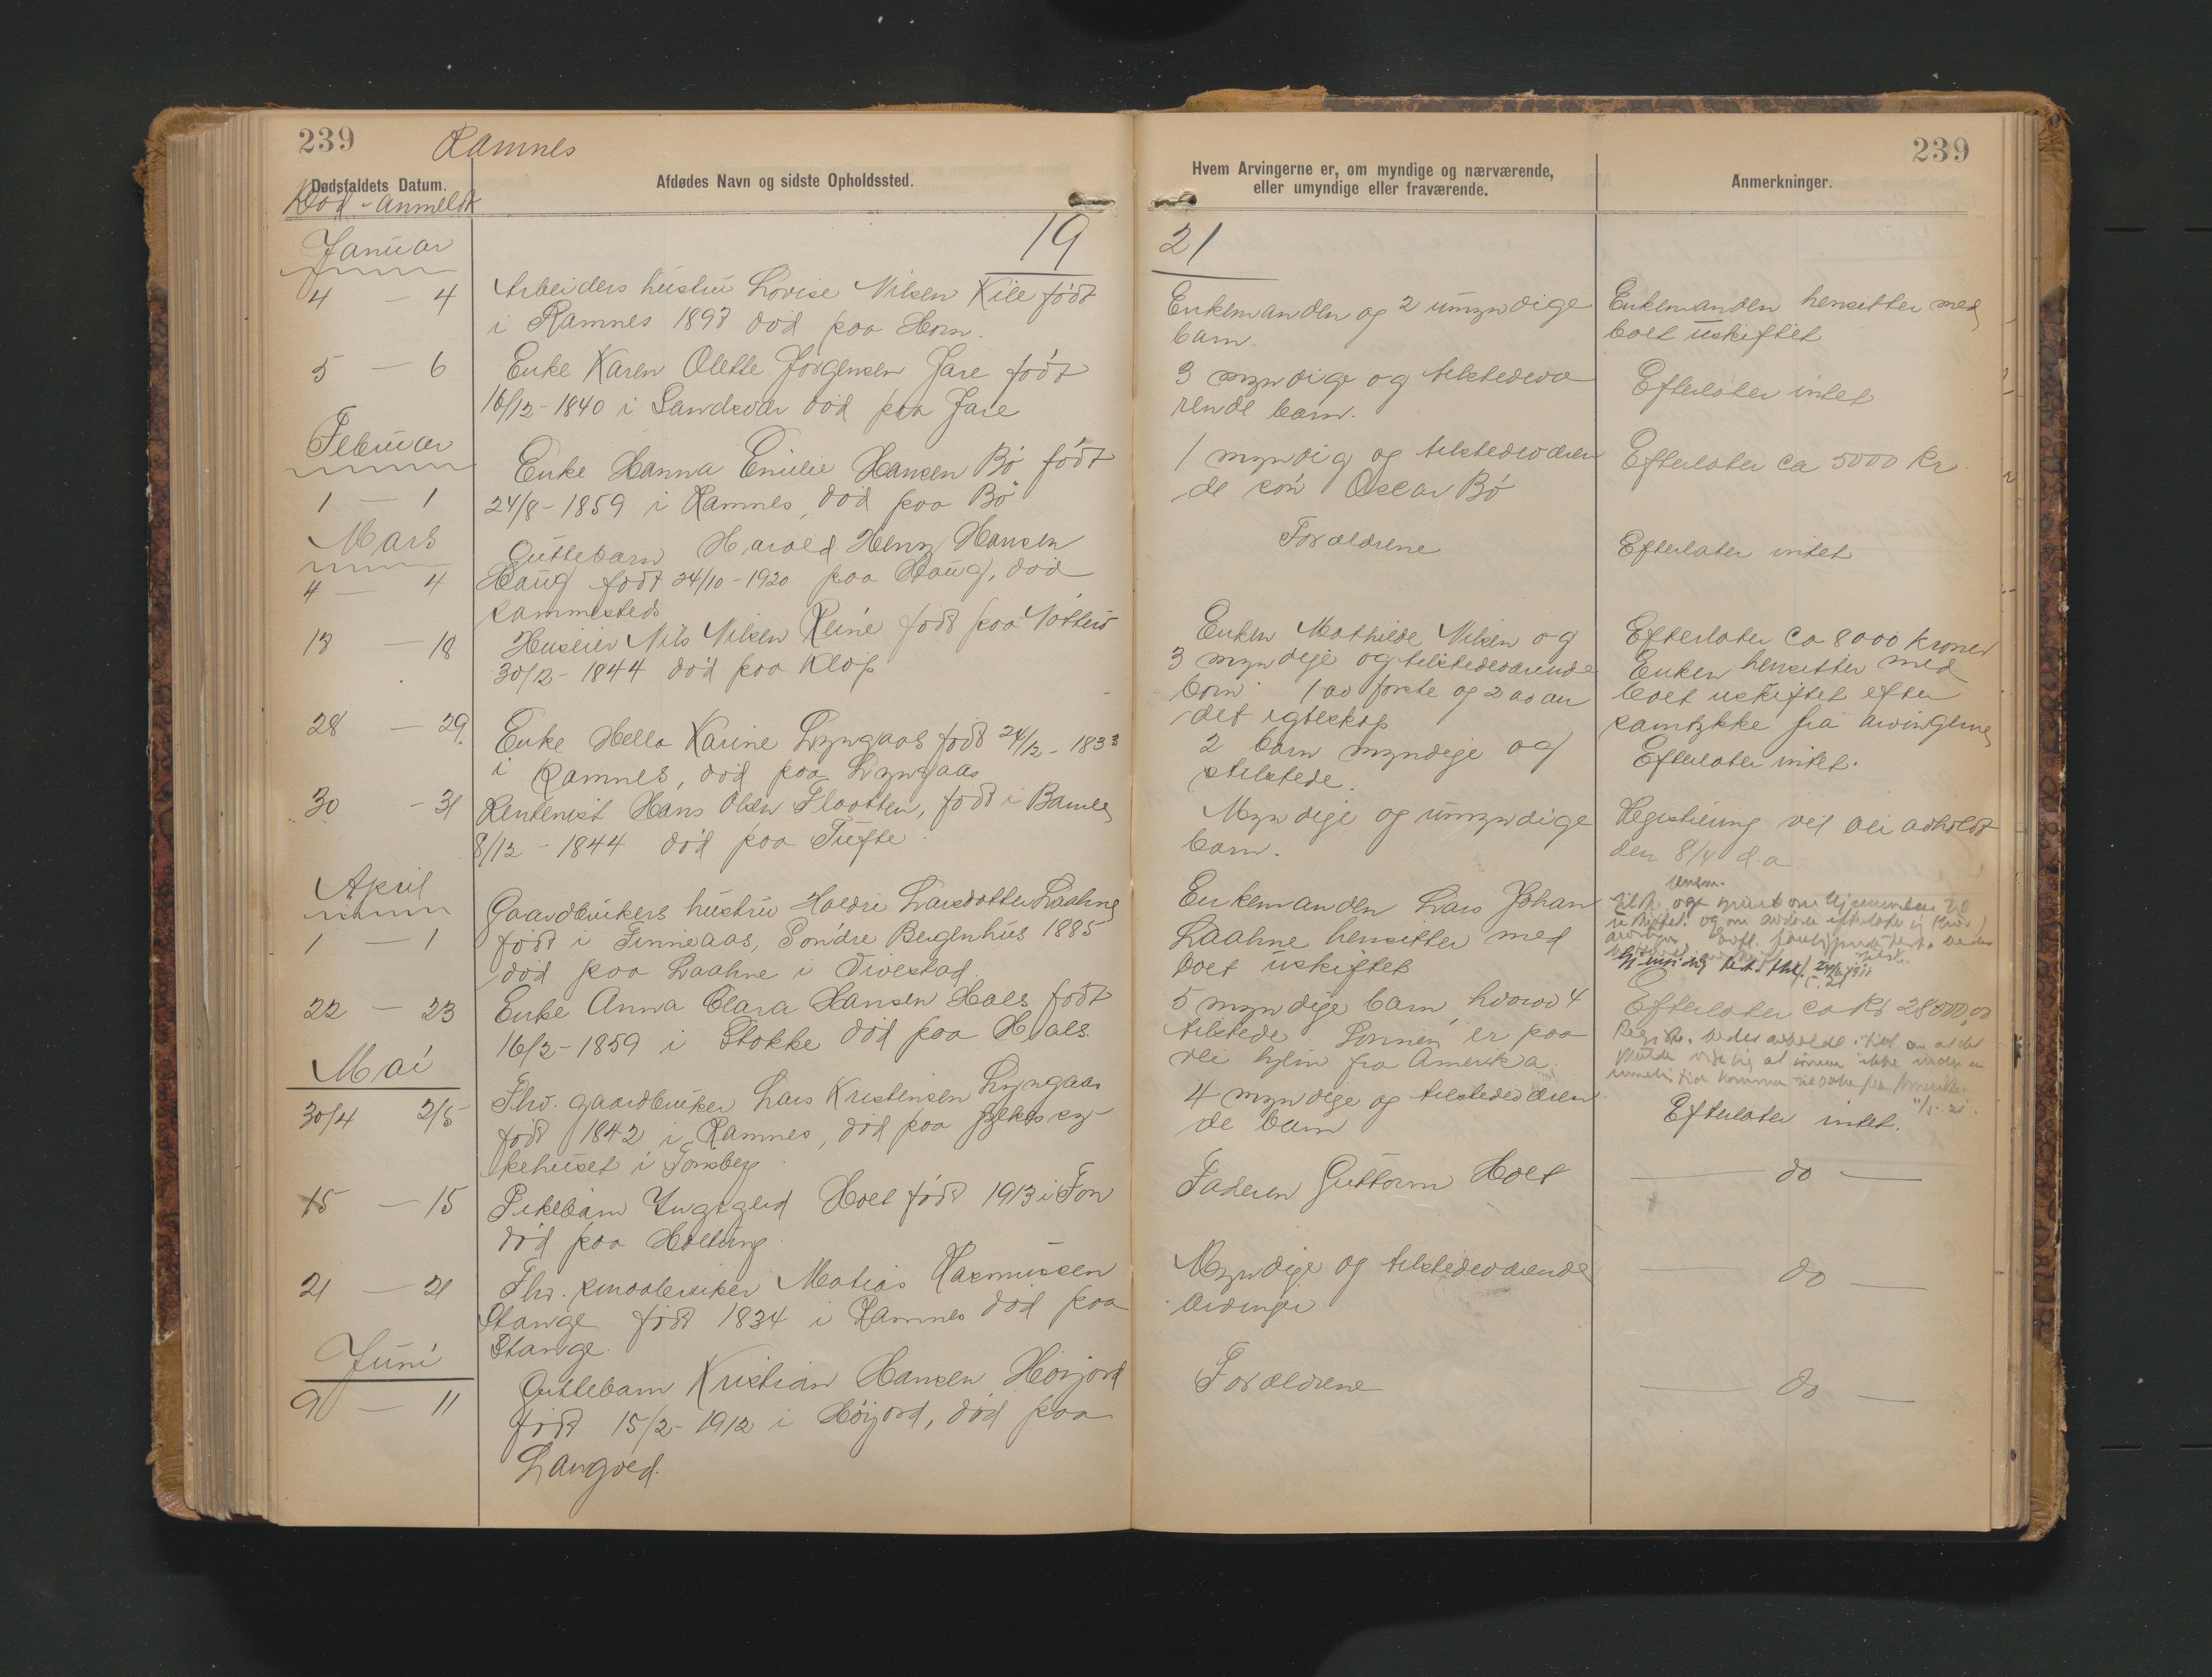 239
Ramnes
Dødsfaldets Datum.
Afdødes Navn og sidste Opholdssted.
Død - anmeldt
19
Januar
4 - 4
Arbeiders hustru Lovise Nilsen Kile født
i Ramnes 1897 død paa Horn.
5 - 6
Enke Karen Olette Jørgensen Jare født
16/12-1840 i Sandsvær død paa Jare
Februar
1 - 1
Enke Hanna Emilie Hansen Bø født
24/8-1859 i Ramnes, død paa Bø
Mars
4 - 4
Guttebarn Harald Henry Hansen
Haug født 24/10-1920 paa Haug, død
sammesteds
18 - 18
Huseier Nils Nilsen Reine født paa Nøtterø
30/12-1844 død paa Klop
28 - 29
Enke Hella Karine Lyngaas født 24/12-1833
i Ramnes, død paa Lyngaas
30 - 31
Rentenist Hans Olsen Flaatten, født i Bamle
8/12-1844 død paa Tufte
April
1 - 1
Gaardbrukers hustru Haldri Larsdotter Laahne
født i Finneaas, Søndre Bergenhus 1885
død paa Laahne i Vivestad
22 - 23
Enke Anna Clara Hansen Hals født
16/2-1859 i Stokke død paa Hals
Mai
30/4 2/5
Fhv. gaardbruker Lars Kristensen Lyngaas
født 1842 i Ramnes, død paa fylkessy-
kehuset i Tønsberg
15 - 15
Pikebarn Ingegerd Hoet født 1913 i Fon
død paa Holtung
21 - 21
Fhv. smaabruker Matias Rasmussen
Stange født 1834 i Ramnes død paa
Stange.
Juni
9 - 11
Guttebarn Kristian Hansen Høijord
født 15/2-1912 i Høijord, død paa
Langved.
239
Hvem Arvingerne er, om myndige og nærværende,
eller umyndige eller fraværende.
Anmerkninger.
21
Enkemanden og 2 umyndige
barn.
Enkemanden hensitter med
boet uskiftet
3 myndige og tilstedevæ
rende barn.
Efterlater intet
1 myndig og tilstedeværen
de søn Oscar Bø
Efterlater ca 5000 Kr
Forældrene
Efterlater intet
Enken Mathilde Nilsen og
3 myndige og tilstedeværende
born 1 av første og 2 av an
det egteskap
Efterlater ca 8000 kroner
Enken hensitter med
boet uskiftet efter
samtykke fra arvingerne
2 barn myndige og
tilstede.
Efterlater intet.
Myndige og umyndige
barn.
Registrering vil bli avholdt
den 8/4 d.a
Enkemanden Lars Johan
Laahne hensitter med
boet uskiftet
5 myndige barn, hvorav 4
tilstede. Sønnen er paa
vei hjem fra Amerika.
Efterlater ca Kr 28000,00
4 myndige og tilstedeværen
de barn
Efterlater intet.
Faderen Guttorm Hoet
do
Myndige og tilstedeværende
arvinger
do
Forældrene
do